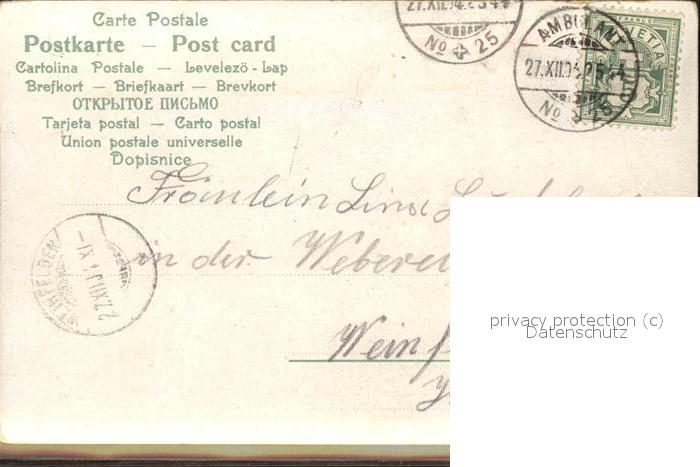 Carte Postale
Postkarte – Post card
Cartolina Postale – Levelező-Lap
Brefkort – Briefkaart – Brevkort
ОТКРЫТОЕ ПИСЬМО
Tarjeta postal – Carto postal
Union postale universelle
Dopisnice
27.XII.04
No 25
AMBULANT
27.XII.04
No 25
FRANCO
HELVETIA
Fräulein Lina
in der Weberei
WEINFELDEN
27.XII.04
Weinf
privacy protection (c)
Datenschutz